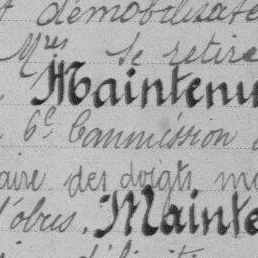 t démobilisate
Mres se retire
Maintenu
6e Commission
aire des doigts, mo
d'obus. Mainte